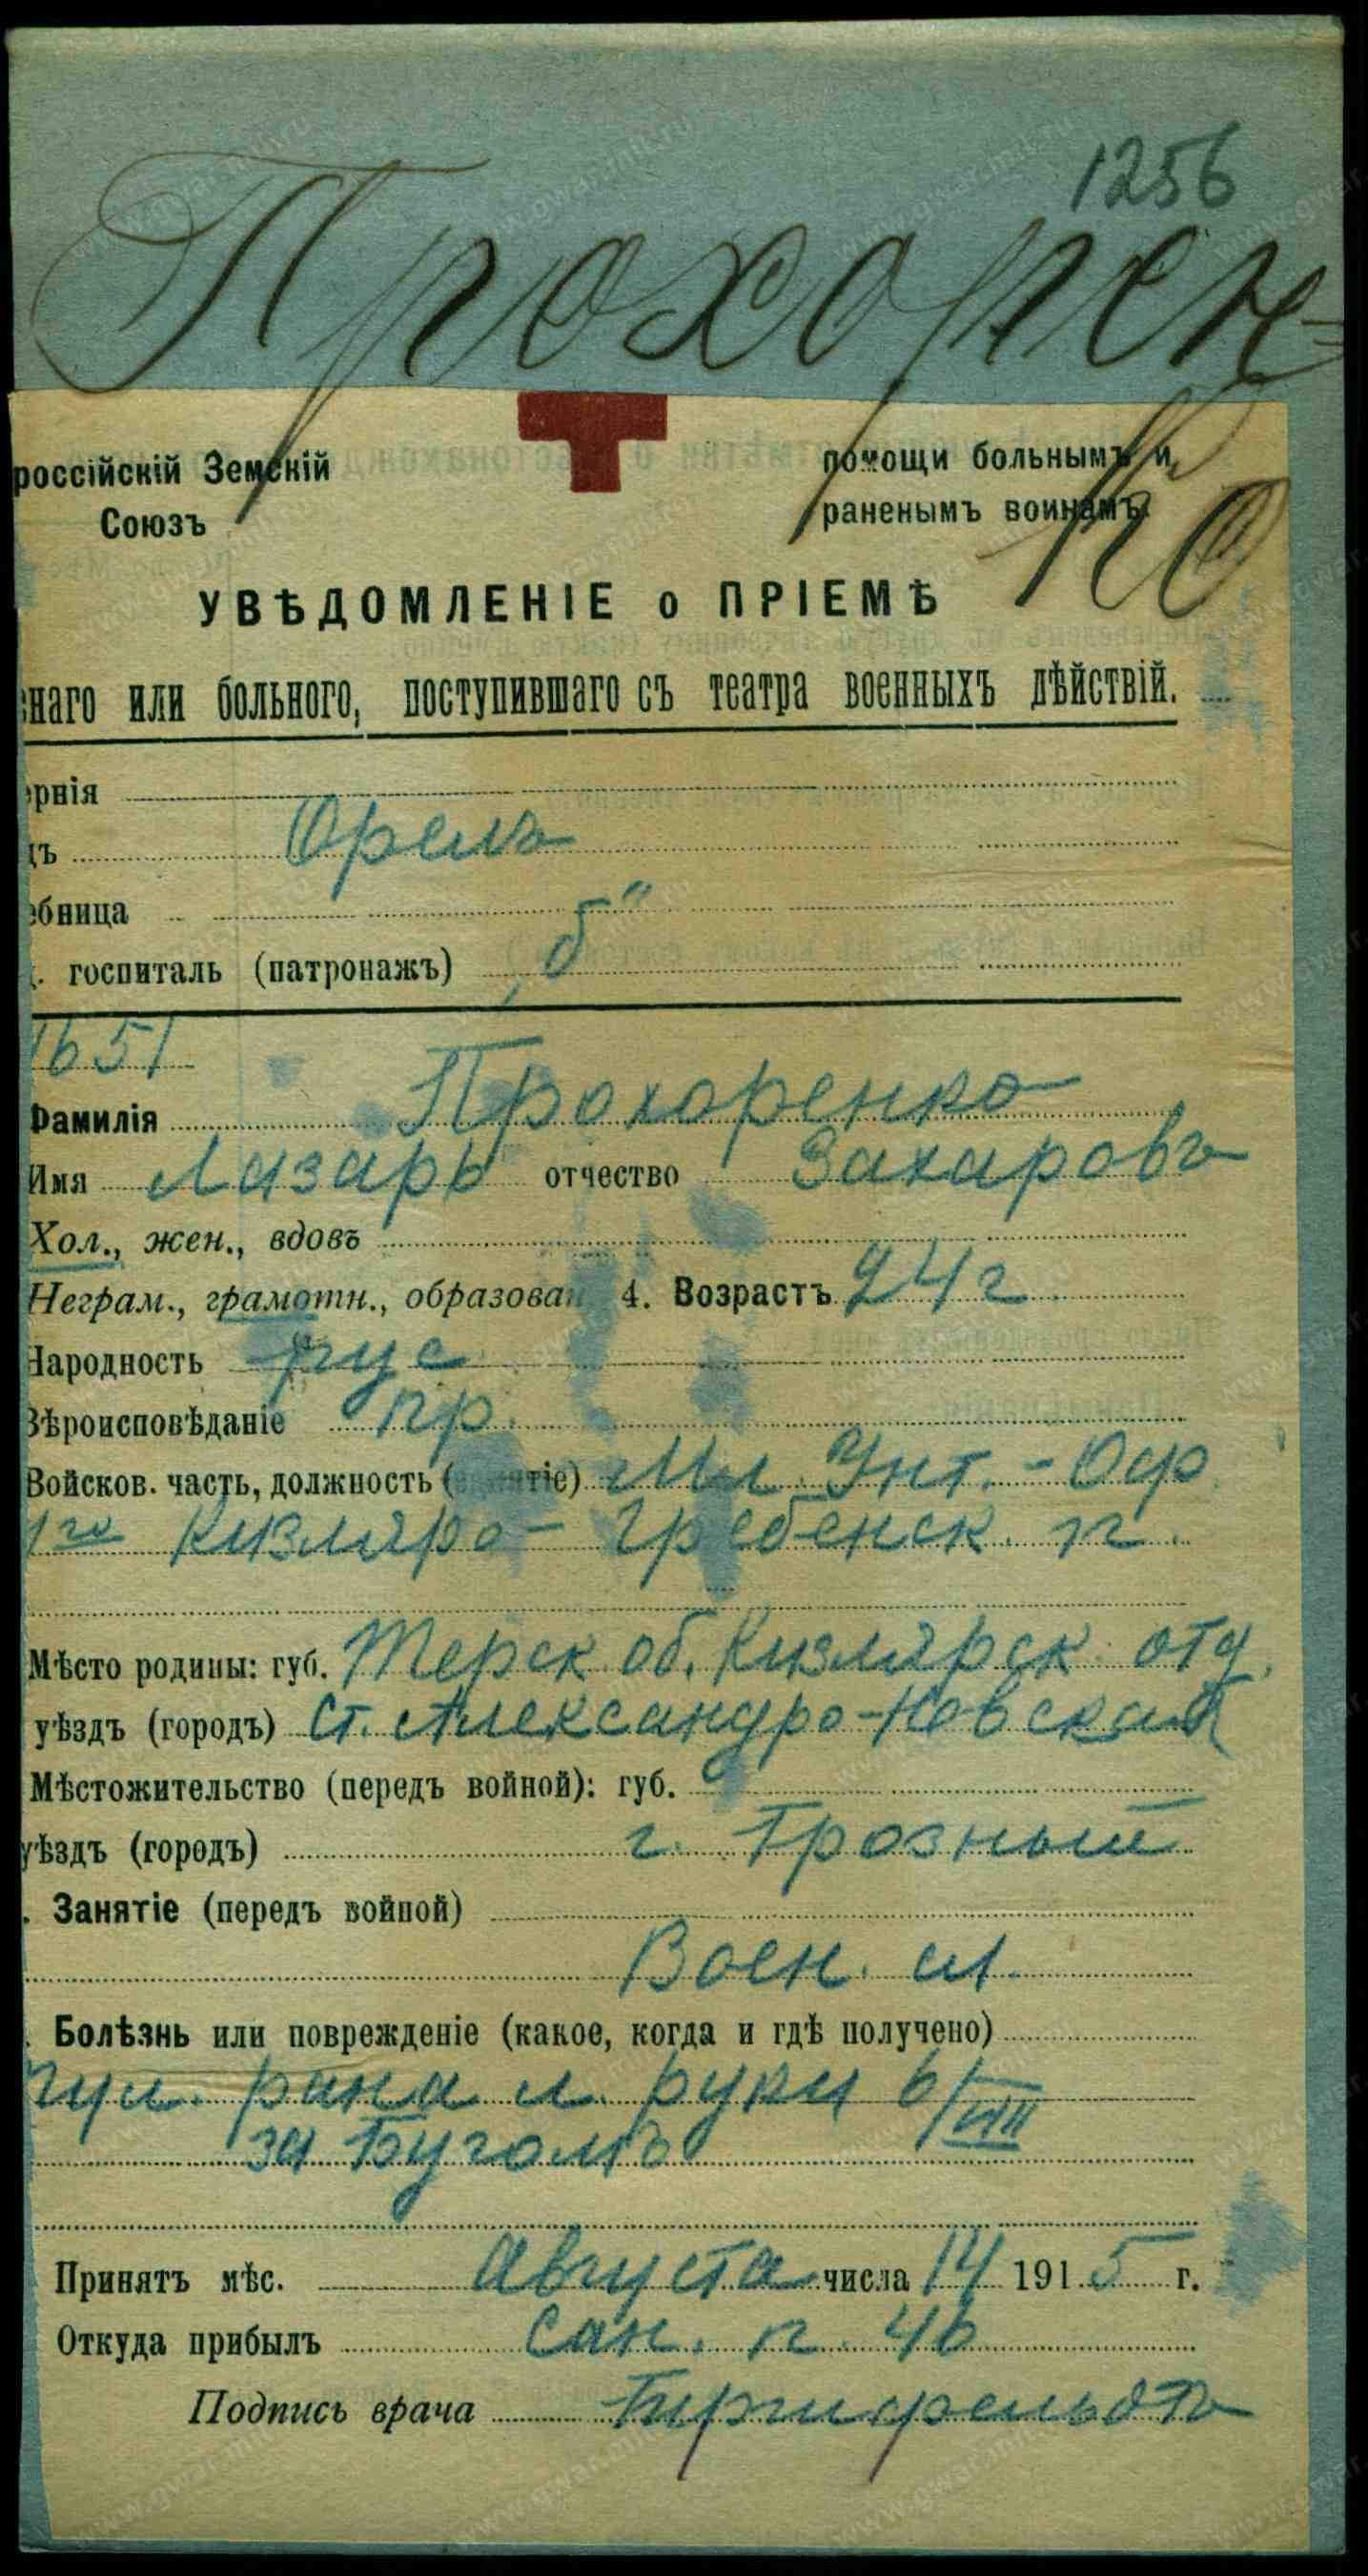 1256
Прохорен=
ко
россійскій Земскій
Союзъ
помощи больнымъ и
раненымъ воинамъ.
УВѢДОМЛЕНІЕ о ПРІЕМѢ
наго или больного, поступившаго съ театра военныхъ дѣйствій.
рнія
дъ Орелъ
бница
. госпиталь (патронажъ) „б"
1651
Фамилія Прохоренко
Имя Лазарь отчество Захаровъ
Хол., жен., вдовъ
Неграм., грамотн., образован 4. Возрастъ 24 г
Народность рус
Вѣроисповѣданіе пр.
Войсков. часть, должность (занятіе) Мл. Унт.-Оф
1го Кизляро-Гребенск. п.
Мѣсто родины: губ. Терск об. Кизлярск. отд.
уѣздъ (городъ) Ст. Александро-Невская
Мѣстожительство (передъ войной): губ.
уѣздъ (городъ) г. Грозный
. Занятіе (передъ войной)
Воен. сл.
. Болѣзнь или поврежденіе (какое, когда и гдѣ получено)
пул. рана л. руки 6/VIII
за Бугомъ
Принятъ мѣс. Августа числа 14 1915 г.
Откуда прибылъ Сан. п. 46
Подпись врача
www.gwar.mil.ru